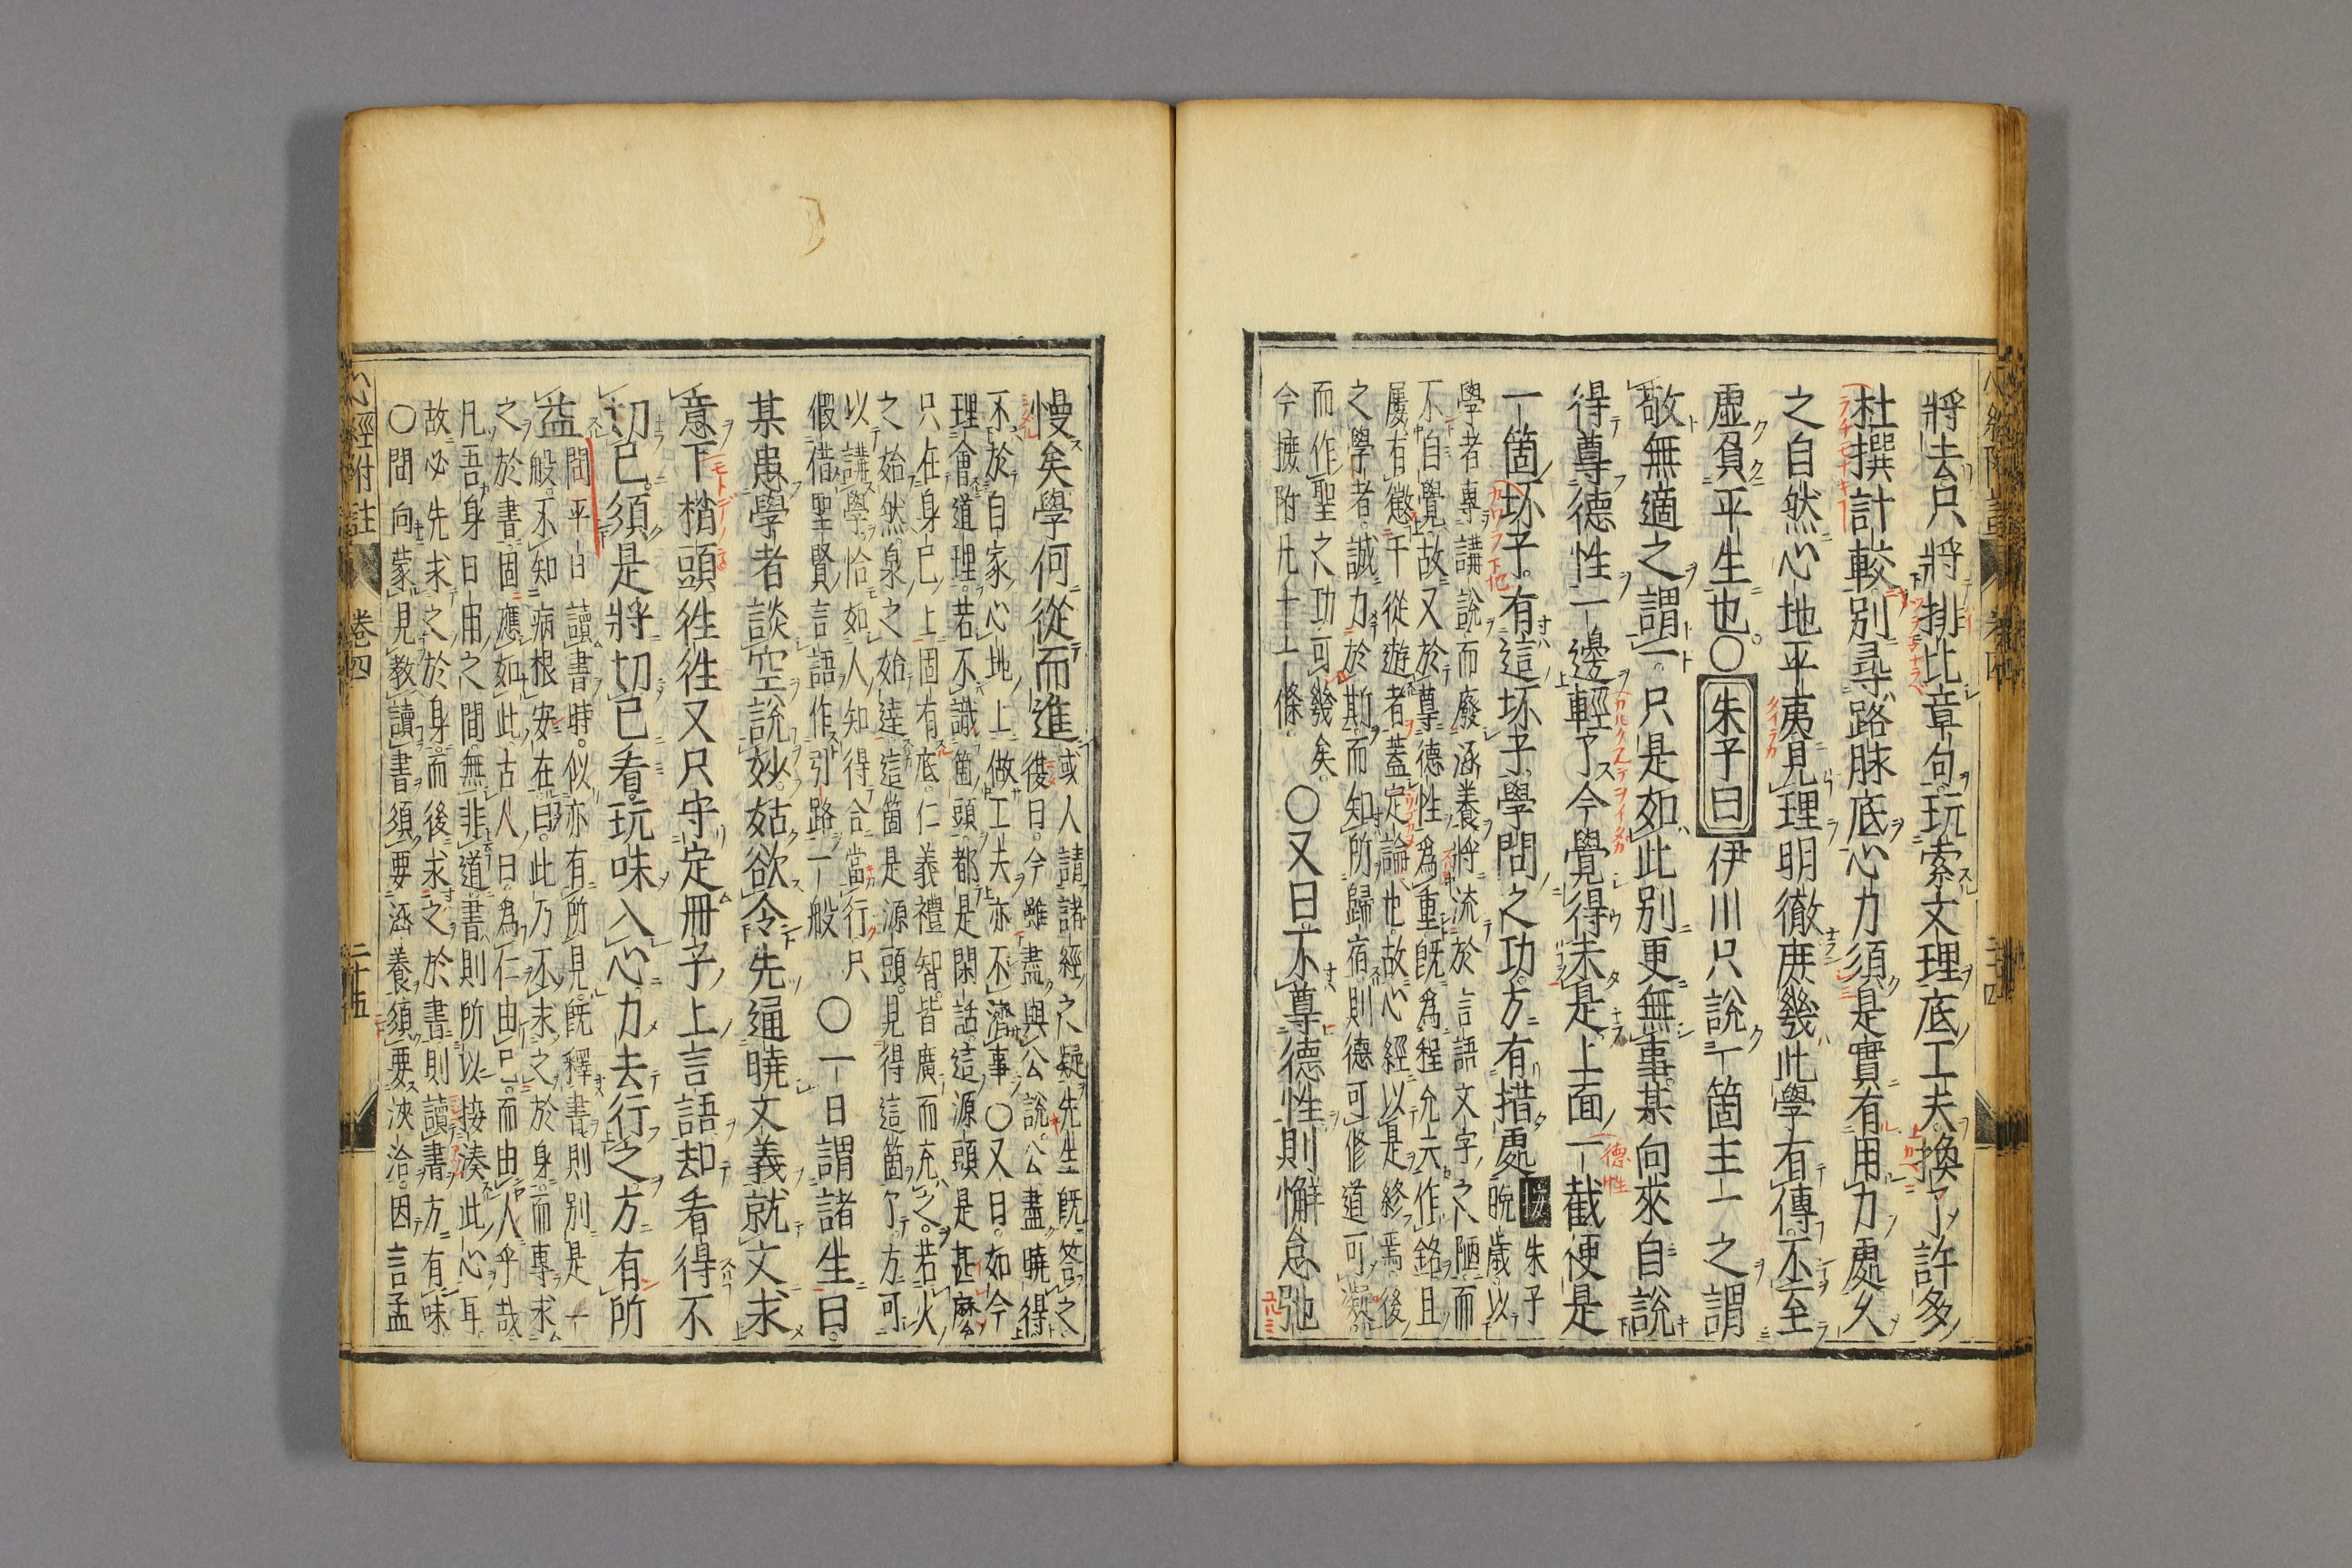 將去只將排比章句玩索文理底工夫換了許多
杜撰計較別尋路脉底心力須是實有用力處久
之自然心地平夷見理明徹庶幾此學有傳不至
虛負平生也。〇朱子曰伊川只說一箇主一之謂
敬無適之謂一。只是如此別更無事某向來自說
得尊德性一邊輕了今覺得未是上面一截便是
一箇坏子。有這坏子學問之功方有措處
按朱子晩歲以
學者專講說而廢涵養將流於言語文字之陋而
不自覺故又於尊德性爲重既爲程允夫作銘且
屢有懲于從遊者蓋定論也。故心經以是終焉。後
之學者。誠力於斯而知所歸宿則德可修道可凝。
而作聖之功可幾矣。
今據附凡十一條。
〇又曰不尊德性則懈怠弛
慢矣學何從而進
或人請諸經之疑先生既答之
復曰。今雖盡與公說。公盡曉得
不於自家心地上做工夫亦不濟事〇又曰。如今
理會道理。若不識箇頭都是閑話。這源頭是甚麼
只在身己上固有底。仁義禮智。皆廣而充之。若火
之始然。泉之始達。這箇是源頭。見得這箇了。方可
以講學。恰如人知得合當行只
假借聖賢言語作引路一般
〇一日謂諸生曰。
某患學者談空說妙。姑欲令先通曉文義就文求
意下梢頭徃徃又只守定冊子上言語却看得不
切己。須是將切己看玩味入心力去行之。方有所
益
問平日讀書時。似亦有所見。既釋書則別是一
般。不知病根安在。曰。此乃不求之於身而專求
之於書固應如此古人曰爲仁由己。而由人乎哉
凡吾身日用之間。無非道書則所以接湊此心耳。
故必先求之於身而後求之於書則讀書方有味
〇問向蒙見教讀書須要涵養須要浹洽。因言孟
心經附註
卷四
二十五